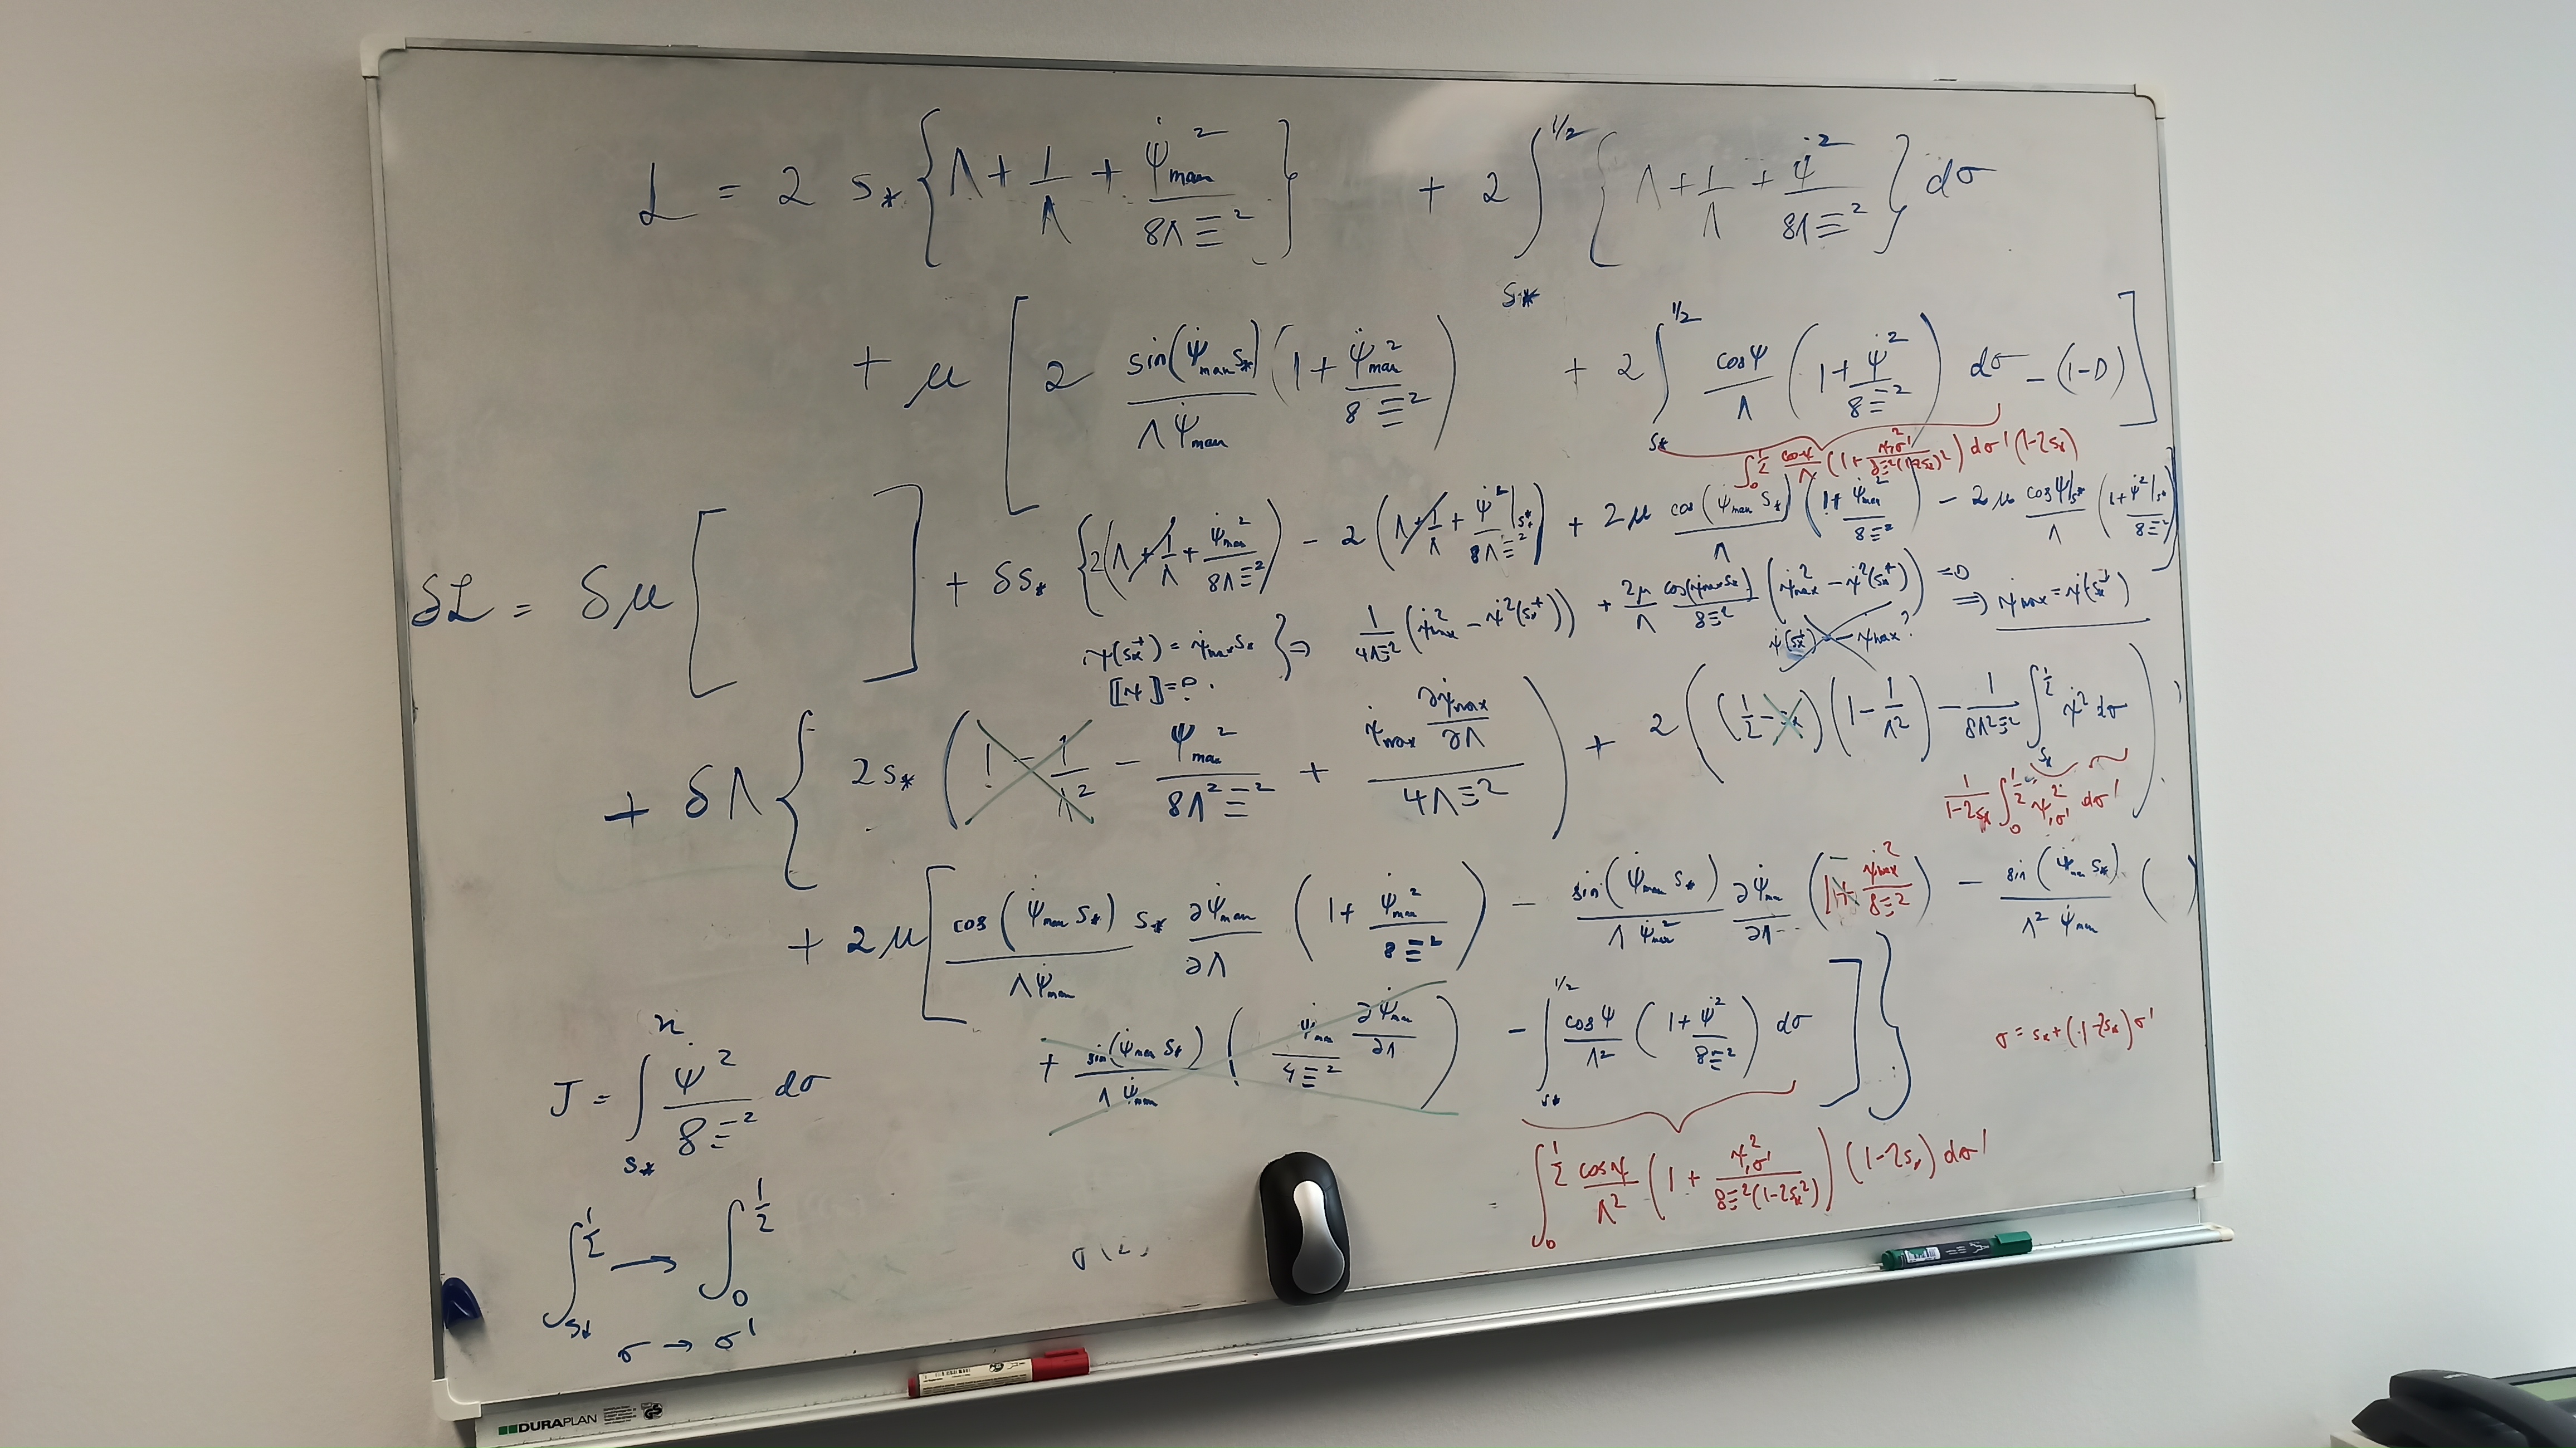 L = 2 s* { Λ + 1/Λ + ψ̇max²/8ΛΞ² } + 2 ∫_{s*}^{1/2} { Λ + 1/Λ + ψ̇²/8ΛΞ² } dσ
+ μ [ 2 sin(ψ̇max s*)/Λψ̇max (1 + ψ̇max²/8Ξ²) + 2 ∫_{s*}^{1/2} cosψ/Λ (1 + ψ̇²/8Ξ²) dσ − (1−D) ]
∫_0^{1/2} cosψ/Λ (1 + ψ,σ'²/8Ξ²(1−2s*)²) dσ' (1−2s*)
δL = δμ [ ] + δs* { 2(Λ + 1/Λ + ψ̇max²/8ΛΞ²) − 2 (Λ + 1/Λ + ψ̇²|s*/8ΛΞ²) + 2μ cos(ψ̇max s*)/Λ (1 + ψ̇max²/8Ξ²) − 2μ cosψ|s*/Λ (1 + ψ̇²|s*/8Ξ²) }
ψ(s*⁺) = ψ̇max s* } ⇒ 1/4ΛΞ² (ψ̇max² − ψ̇²(s*⁺)) + 2μ/Λ cos(ψ̇max s*)/8Ξ² (ψ̇max² − ψ̇²(s*⁺)) = 0 ⇒ ψ̇max = ψ̇(s*⁺)
[[ψ]] = 0.
ψ̇(s*⁺) = − ψ̇max?
+ δΛ { 2s* (1 − 1/Λ² − ψ̇max²/8Λ²Ξ² + ψ̇max ∂ψ̇max/∂Λ/4ΛΞ²) + 2 ((1/2 − s*)(1 − 1/Λ²) − 1/8Λ²Ξ² ∫_{s*}^{1/2} ψ̇² dσ)
1/(1−2s*) ∫_0^{1/2} ψ,σ'² dσ'
+ 2μ [ cos(ψ̇max s*)/Λψ̇max s* ∂ψ̇max/∂Λ (1 + ψ̇max²/8Ξ²) − sin(ψ̇max s*)/Λψ̇max² ∂ψ̇max/∂Λ (1 − ψ̇max²/8Ξ²) − sin(ψ̇max s*)/Λ²ψ̇max ( )
+ sin(ψ̇max s*)/Λψ̇max (ψ̇max/4Ξ² ∂ψ̇max/∂Λ) − ∫_{s*}^{1/2} cosψ/Λ² (1 + ψ̇²/8Ξ²) dσ ] }
σ = s* + (1−2s*)σ'
J = ∫_{s*}^{x} ψ²/8Ξ² dσ
= ∫_0^{1/2} cosψ/Λ² (1 + ψ,σ'²/8Ξ²(1−2s*²)) (1−2s*) dσ'
∫_{s*}^{1/2} → ∫_0^{1/2}
σ → σ'
DURAPLAN